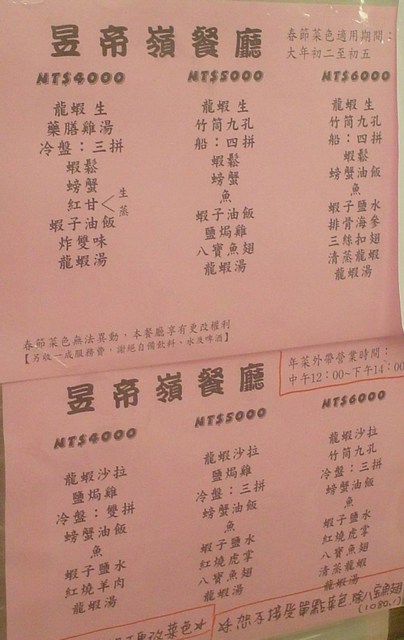 昱帝嶺餐廳
春節菜色適用期間：
大年初二至初五
NT$4000
龍蝦生
藥膳雞湯
冷盤：三拼
蝦鬆
螃蟹
紅甘＜生
蒸
蝦子油飯
炸雙味
龍蝦湯
NT$5000
龍蝦生
竹筒九孔
船：四拼
蝦鬆
螃蟹
魚
蝦子油飯
鹽焗雞
八寶魚翅
龍蝦湯
NT$6000
龍蝦生
竹筒九孔
船：四拼
蝦鬆
螃蟹油飯
魚
蝦子鹽水
排骨海參
三絲扣翅
清蒸龍蝦
龍蝦湯
春節菜色無法異動，本餐廳享有更改權利
【另收一成服務費，謝絕自備飲料、水及啤酒】
昱帝嶺餐廳
年菜外帶營業時間：
中午12：00~下午14：00
NT$4000
龍蝦沙拉
鹽焗雞
冷盤：雙拼
螃蟹油飯
魚
蝦子鹽水
紅燒羊肉
龍蝦湯
NT$5000
龍蝦沙拉
鹽焗雞
冷盤：三拼
螃蟹油飯
魚
蝦子鹽水
紅燒虎掌
八寶魚翅
龍蝦湯
NT$6000
龍蝦沙拉
竹筒九孔
冷盤：三拼
螃蟹油飯
魚
蝦子鹽水
紅燒虎掌
八寶魚翅
清蒸龍蝦
龍蝦湯